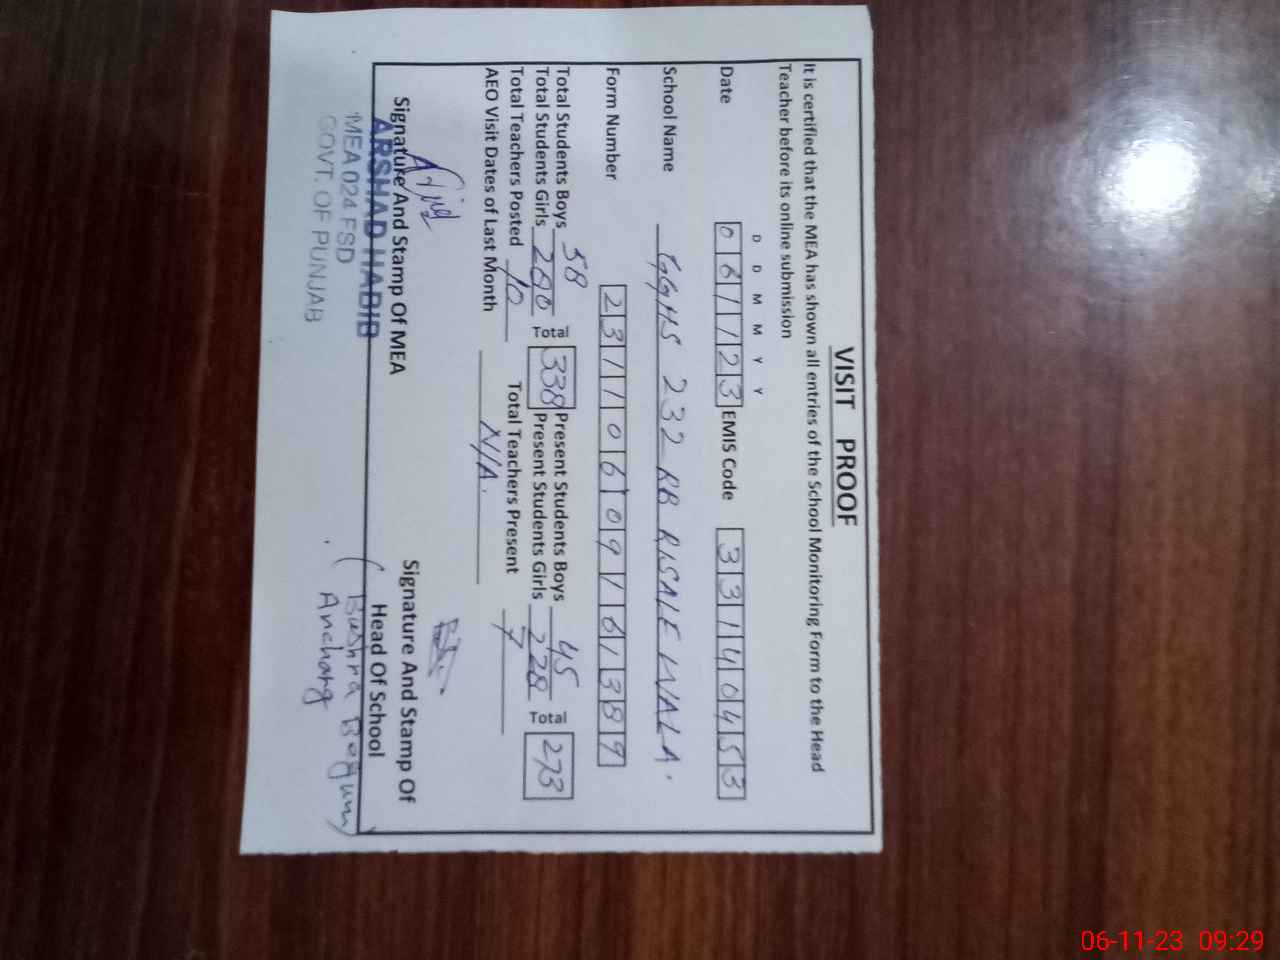 VISIT PROOF
It is certified that the MEA has shown all entries of the School Monitoring Form to the Head
Teacher before its online submission
D D M M Y Y
Date 061123 EMIS Code 33140453
School Name GGHS 232 RB RISALEWALA.
Form Number
Total Students Boys 58 Present Students Boys 45
Total Students Girls 280 Total 338 Present Students Girls 228 Total 273
Total Teachers Posted 10 Total Teachers Present 7
AEO Visit Dates of Last Month N/A.
Signature And Stamp Of MEA
Signature And Stamp Of
Head Of School
ARSHAD HABIB
MEA 024 FSD
GOVT. OF PUNJAB
(Bushra Begum)
Ancharg
06-11-23 09:29